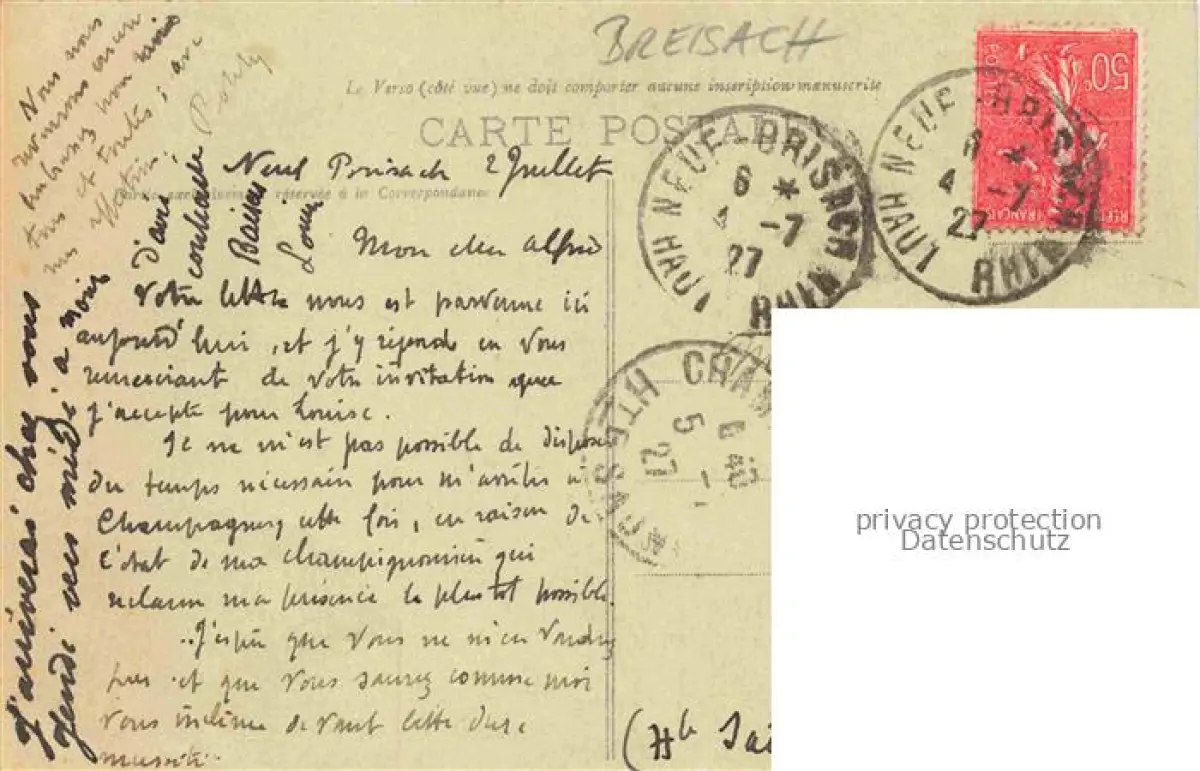 BREISACH
Le Verso (côté vue) ne doit comporter aucune inscription manuscrite
CARTE POSTALE
réservée à la Correspondance
Neuf Brisach 2 Juillet
Mon cher Alfred
Votre lettre nous est parvenue ici
aujourd'hui, et j'y réponds en vous
remerciant de votre invitation que
j'accepte pour Louise.
Il ne m'est pas possible de disposer
du temps nécessaire pour m'arrêter à
Champagney cette fois, en raison de
l'état de ma champignonnière qui
réclame ma présence le plus tôt possible.
J'espère que vous ne m'en voudrez
pas et que vous saurez comme moi
vous incliner devant cette dure
nécessité.
Nous nous
tous et toutes
J'arriverai chez vous
Jeudi vers midi à moins
d'avis
contraire
Baisers
Louise
50c
POSTES
NEUF-BRISACH
6 *
4 -7
27
HAUT RHIN
NEUF-BRISACH
6 *
4 -7
27
HAUT RHIN
CHAM
6 40
5 -
27
HTE SAÔN
(Hte Saô
privacy protection
Datenschutz